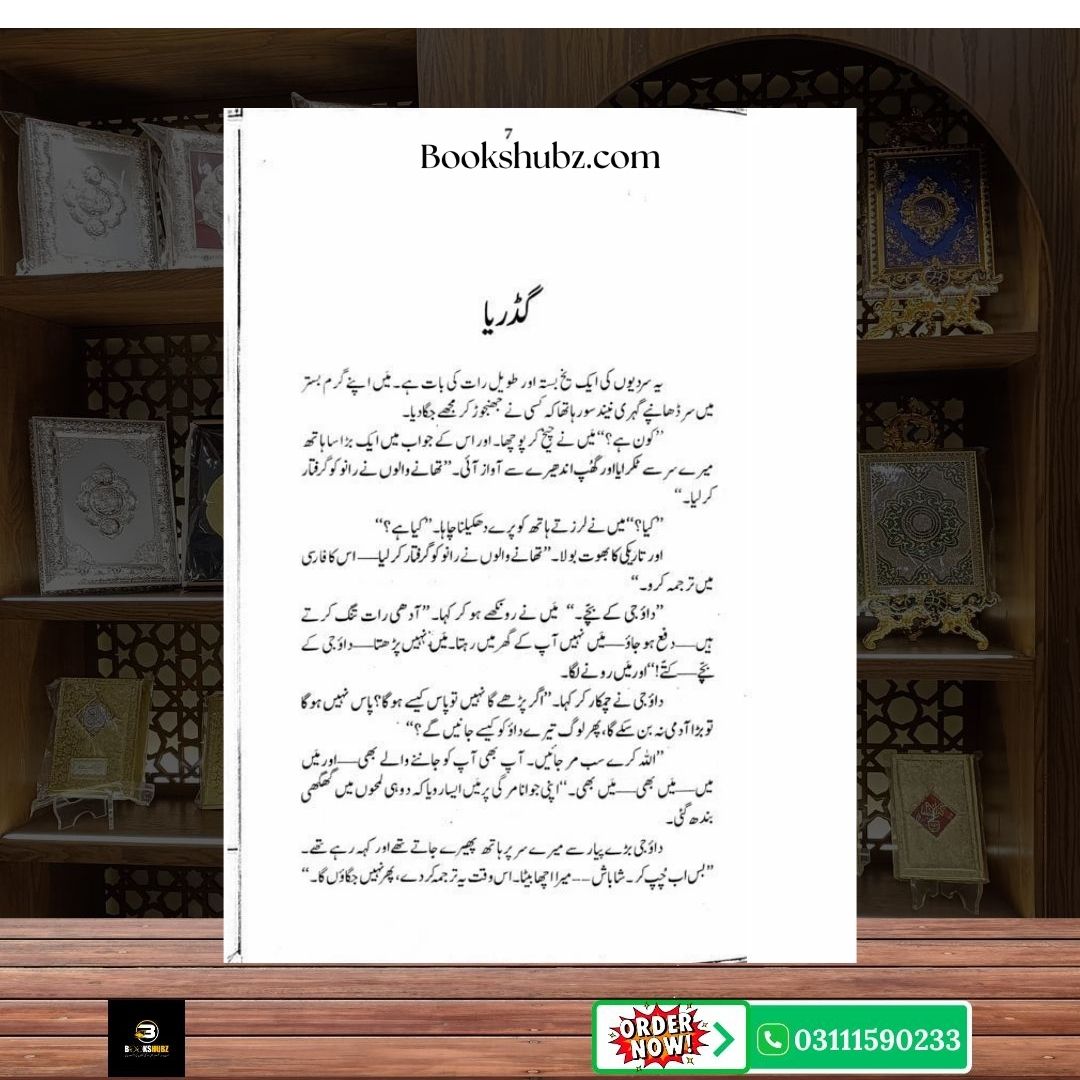 7
Bookshubz.com
گڈریا
یہ سردیوں کی ایک یخ بستہ اور طویل رات کی بات ہے۔ میں اپنے گرم بستر
میں سر ڈھانپے گہری نیند سو رہا تھا کہ کسی نے جھنجوڑ کر مجھے جگا دیا۔
”کون ہے؟“ میں نے چیخ کر پوچھا۔ اور اس کے جواب میں ایک بڑا سا ہاتھ
میرے سر سے ٹکرایا اور گھُپ اندھیرے سے آواز آئی۔ ”تھانے والوں نے رانو کو گرفتار
کر لیا۔“
”کیا؟“ میں نے لرزتے ہاتھ کو پرے دھکیلنا چاہا۔ ”کیا ہے؟“
اور تاریکی کا بھوت بولا۔ ”تھانے والوں نے رانو کو گرفتار کر لیا— اس کا فارسی
میں ترجمہ کرو۔“
”داؤ جی کے بچے۔“ میں نے رونکھے ہو کر کہا۔ ”آدھی رات تنگ کرتے
ہیں—دفع ہو جاؤ—میں نہیں آپ کے گھر میں رہتا۔ میں نہیں پڑھتا—داؤ جی کے
بچے—کتے!“ اور میں رونے لگا۔
داؤ جی نے چمکار کر کہا۔ ”اگر پڑھے گا نہیں تو پاس کیسے ہو گا؟ پاس نہیں ہو گا
تو بڑا آدمی نہ بن سکے گا، پھر لوگ تیرے داؤ کو کیسے جانیں گے؟“
”اللہ کرے سب مر جائیں۔ آپ بھی آپ کو جاننے والے بھی—اور میں
میں—میں بھی—میں بھی۔“ اپنی جوانا مرگی پر میں ایسا رویا کہ دو ہی لمحوں میں گھگھی
بندھ گئی۔
داؤ جی بڑے پیار سے میرے سر پر ہاتھ پھیرے جاتے تھے اور کہہ رہے تھے۔
”بس اب چُپ کر۔ شاباش --میرا اچھا بیٹا۔ اس وقت یہ ترجمہ کر دے، پھر نہیں جگاؤں گا۔“
BOOKSHUBZ
ORDER NOW!
03111590233